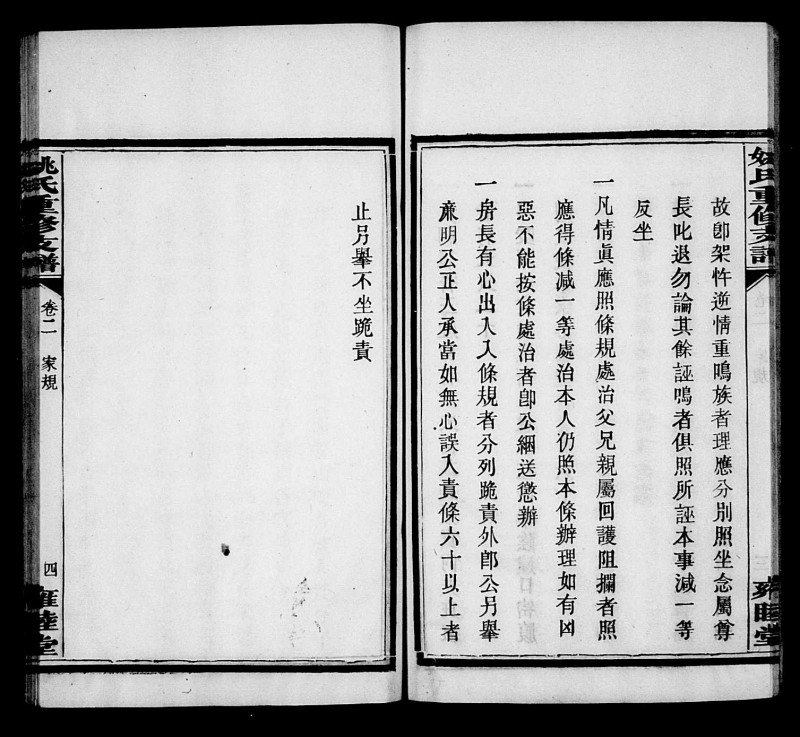 姚氏重修支譜
三
雍睦堂
故卽架忤逆情重鳴族者理應分別照坐念屬尊
長叱退勿論其餘誣鳴者俱照所誣本事減一等
反坐
一凡情眞應照條規處治父兄親屬回護阻攔者照
應得條減一等處治本人仍照本條辦理如有凶
惡不能按條處治者卽公綑送懲辦
一房長有心出入入條規者分列跪責外卽公另舉
廉明公正人承當如無心誤入責條六十以上者
止另舉不坐跪責
姚氏重修支譜
卷二
家規
四
雍睦堂